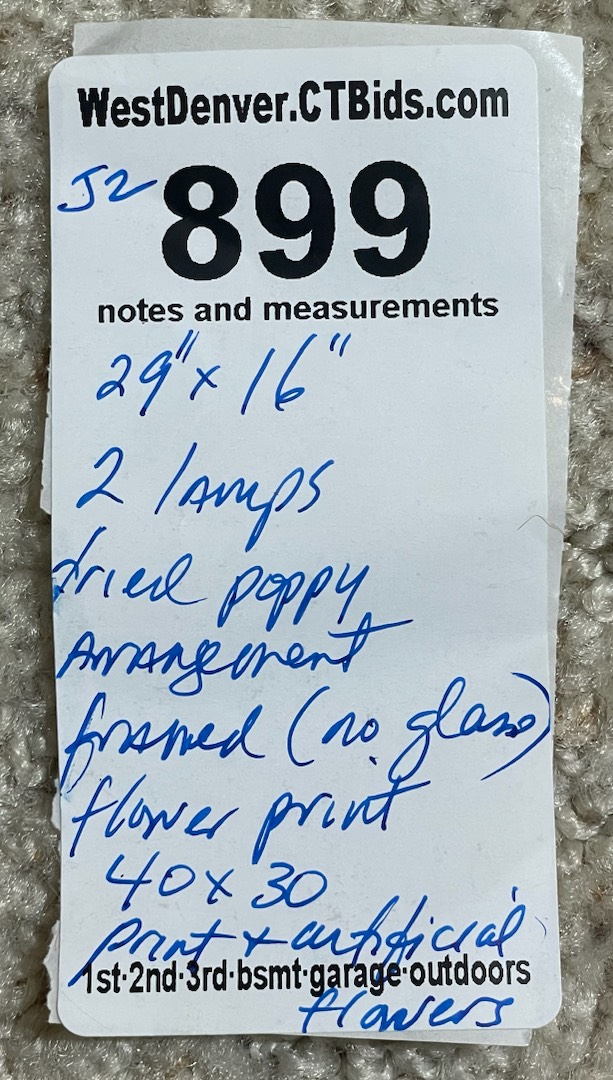 WestDenver.CTBids.com
J2 899
notes and measurements
29" x 16"
2 lamps
dried poppy
Arrangement
framed (no glass)
flower print
40 x 30
print + artificial
1st·2nd·3rd·bsmt·garage·outdoors
flowers